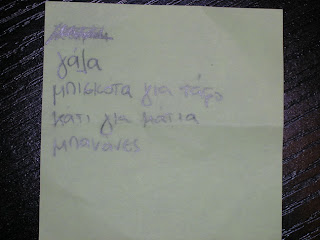 γάλα
μπισκοτα για
κατι για μάτια
μπανάνες